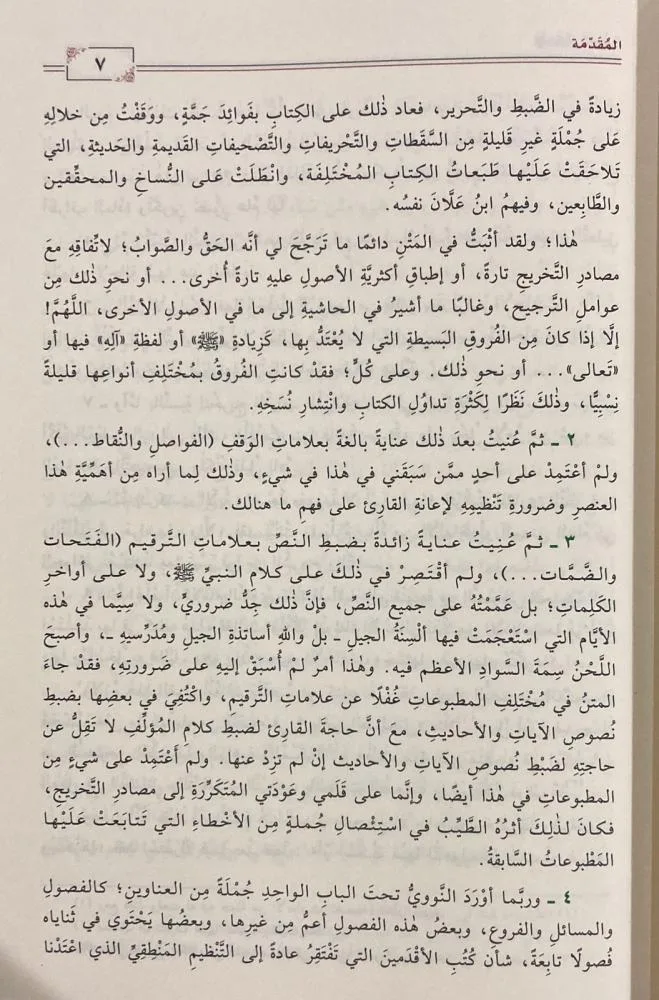 المُقَدِّمَة
٧
زيادةً في الضَّبطِ والتَّحرير، فعاد ذٰلك على الكِتابِ بفَوائِدَ جَمَّةٍ، ووَقَفْتُ مِن خلالِهِ
عَلى جُمْلَةٍ غيرِ قَليلةٍ مِن السَّقَطاتِ والتَّحْريفاتِ والتَّصْحيفاتِ القَديمةِ والحَديثةِ، التي
تَلاحَقَتْ عَلَيْها طَبَعاتُ الكِتابِ المُخْتَلِفَة، وانْطَلَتْ عَلى النُّساخِ والمحقِّقين
والطَّابِعين، وفيهمُ ابنُ عَلَّانَ نفسُه.
هٰذا؛ ولقد أثْبَتُّ في المَتْنِ دائمًا ما تَرَجَّحَ لي أنَّه الحَقُّ والصَّوابُ؛ لاتِّفاقِهِ معَ
مصادرِ التَّخريجِ تارةً، أو إطباقِ أكثريَّةِ الأصولِ عليهِ تارةً أُخرى... أو نحوِ ذٰلك مِن
عواملِ التَّرجيح، وغالبًا ما أشيرُ في الحاشيةِ إلى ما في الأصولِ الأخرى، اللَّهُمَّ!
إلَّا إذا كانَ مِن الفُروقِ البَسيطةِ التي لا يُعْتَدُّ بِها، كَزِيادةِ «ﷺ» أو لفظةِ «آلِهِ» فيها أو
«تَعالى»... أو نحوِ ذٰلك. وعلى كُلٍّ؛ فقدْ كانتِ الفُروقُ بمُخْتَلِفِ أنواعِها قليلةً
نِسْبِيًّا، وذٰلكَ نَظَرًا لِكَثْرَةِ تداوُلِ الكتابِ وانْتِشارِ نُسَخِهِ.
٢ ـ ثمَّ عُنيتُ بعدَ ذٰلك عنايةً بالغةً بعلاماتِ الوَقفِ (الفواصلِ والنُّقاط...)،
ولمْ أعْتَمِدْ على أحدٍ ممَّن سَبَقَني في هٰذا في شيءٍ، وذٰلك لِما أراه مِن أهَمِّيَّةِ هٰذا
العنصرِ وضرورةِ تَنْظيمِهِ لإعانةِ القارئِ على فهمِ ما هنالك.
٣ ـ ثمَّ عُنِيتُ عنايةً زائدةً بضبطِ النَّصِّ بعلاماتِ التَّرقيم (الفَتَحات
والضَّمَّات...)، ولم أقْتَصِرْ في ذٰلكَ على كلامِ النبيِّ ﷺ، ولا على أواخرِ
الكَلِماتِ؛ بل عَمَّمْتُهُ على جميعِ النَّصِّ، فإنَّ ذٰلك جِدُّ ضروريٍّ، ولا سِيَّما في هٰذه
الأيَّام التي اسْتَعْجَمَتْ فيها ألْسِنَةُ الجيلِ ـ بلْ واللهِ أساتذةِ الجيلِ ومُدَرِّسيهِ ـ، وأصبحَ
اللَّحْنُ سِمَةَ السَّوادِ الأعظمِ فيه. وهٰذا أمرٌ لمْ أُسْبَقْ إليهِ على ضَرورتِهِ، فقدْ جاءَ
المتنُ في مُخْتَلِفِ المطبوعاتِ غُفْلًا عن علاماتِ التَّرقيمِ، واكْتُفِيَ في بعضِها بضبطِ
نُصوصِ الآياتِ والأحاديثِ، معَ أنَّ حاجةَ القارئِ لضبطِ كلامِ المُؤلِّفِ لا تَقِلُّ عن
حاجتِهِ لضَبْطِ نُصوصِ الآياتِ والأحاديث إنْ لم تزِدْ عنها. ولم أَعْتَمِدْ على شيءٍ مِن
المطبوعاتِ في هٰذا أيضًا، وإنَّما على قَلَمي وعَوْدَتي المُتَكَرِّرَةِ إلى مصادرِ التَّخريجِ،
فكانَ لذٰلِكَ أثرُهُ الطَّيِّبُ في اسْتِئْصالِ جُملةٍ مِن الأخْطاءِ التي تَتابَعَتْ عَلَيْها
المَطْبوعاتُ السَّابقةُ.
٤ ـ وربَّما أوْرَدَ النَّوويُّ تحتَ البابِ الواحِدِ جُمْلَةً مِن العناوينِ؛ كالفصولِ
والمسائلِ والفروعِ، وبعضُ هٰذه الفصولِ أعمُّ مِن غيرِها، وبعضُها يَحْتَوي في ثَناياه
فُصولًا تابِعَةً، شأن كُتُبِ الأقْدَمينَ التي تَفْتَقِرُ عادةً إلى التَّنظيمِ المَنْطِقِيِّ الذي اعْتَدْنا